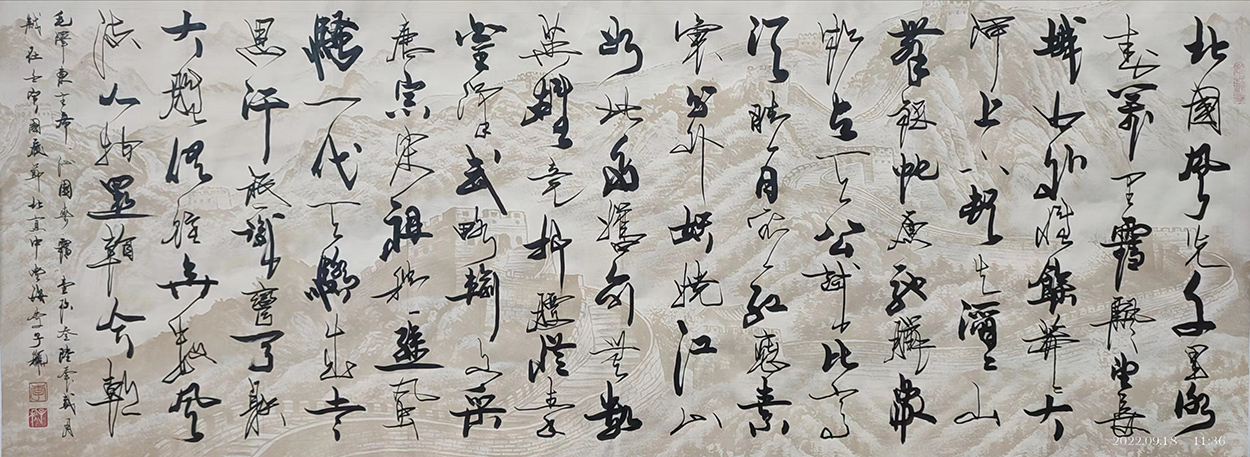 北國風光千里冰
封萬里雪飄望長
城内外惟餘莽々大
河上下頓失滔々山
舞銀蛇原馳臘象
欲与天公試比高
須晴日看紅妝素
裹分外妖嬈江山
如此多嬌引無數
英雄競折腰惜秦
皇漢武略輸文采
唐宗宋祖稍遜風
騷一代天驕成吉
思汗祇識彎弓射
大雕俱往矣數風
流人物還看今朝
毛澤東主席沁園春雪壹玖叁陸年貳月
2022.09.18 11:36